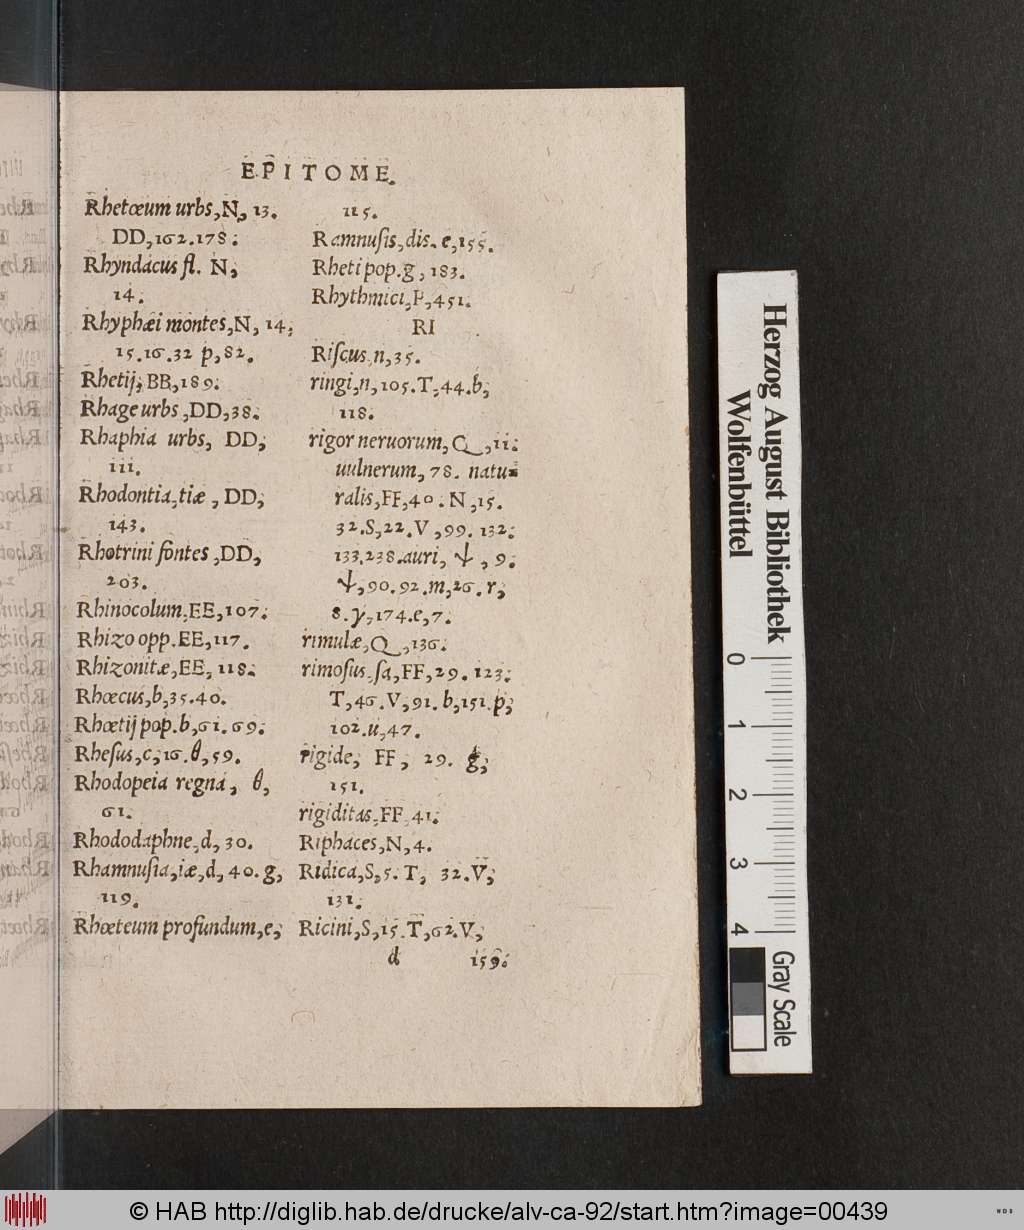 EPITOME.
Rhetœum urbs, N, 13.
DD, 162. 178.
Rhyndacus fl. N,
14.
Rhyphæi montes, N, 14.
15. 16. 32 p, 82.
Rhetij, BB, 189.
Rhage urbs, DD, 38.
Rhaphia urbs, DD,
111.
Rhodontia, tiæ, DD,
143.
Rhotrini fontes, DD,
203.
Rhinocolum, EE, 107.
Rhizo opp. EE, 117.
Rhizonitæ, EE, 118.
Rhœcus, b, 35. 40.
Rhœtij pop. b, 61. 69.
Rheſus, c, 16. θ, 59.
Rhodopeia regna, θ,
61.
Rhododaphne, d, 30.
Rhamnuſia, iæ, d, 40. g,
119.
Rhœteum profundum, e,
115.
Ramnuſis, dis. e, 155.
Rheti pop. g, 183.
Rhythmici, P, 451.
RI
Riſcus, n, 35.
ringi, n, 105. T, 44. b,
118.
rigor neruorum, Q, 11.
uulnerum, 78. natu-
ralis, FF, 40. N, 15.
32. S, 22. V, 99. 132.
133. 238. auri, ψ, 9.
ψ, 90. 92. m, 26. r,
8. y, 174. e, 7.
rimulæ, Q, 136.
rimoſus, ſa, FF, 29. 123.
T, 46. V, 91. b, 151. p,
102. u, 47.
rigide, FF, 29. g,
151.
rigiditas, FF, 41.
Riphaces, N, 4.
Ridica, S, 5. T, 32. V,
131.
Ricini, S, 15. T, 62. V,
d 159.
Herzog August Bibliothek
Wolfenbüttel
0 1 2 3 4
Gray Scale
© HAB http://diglib.hab.de/drucke/alv-ca-92/start.htm?image=00439